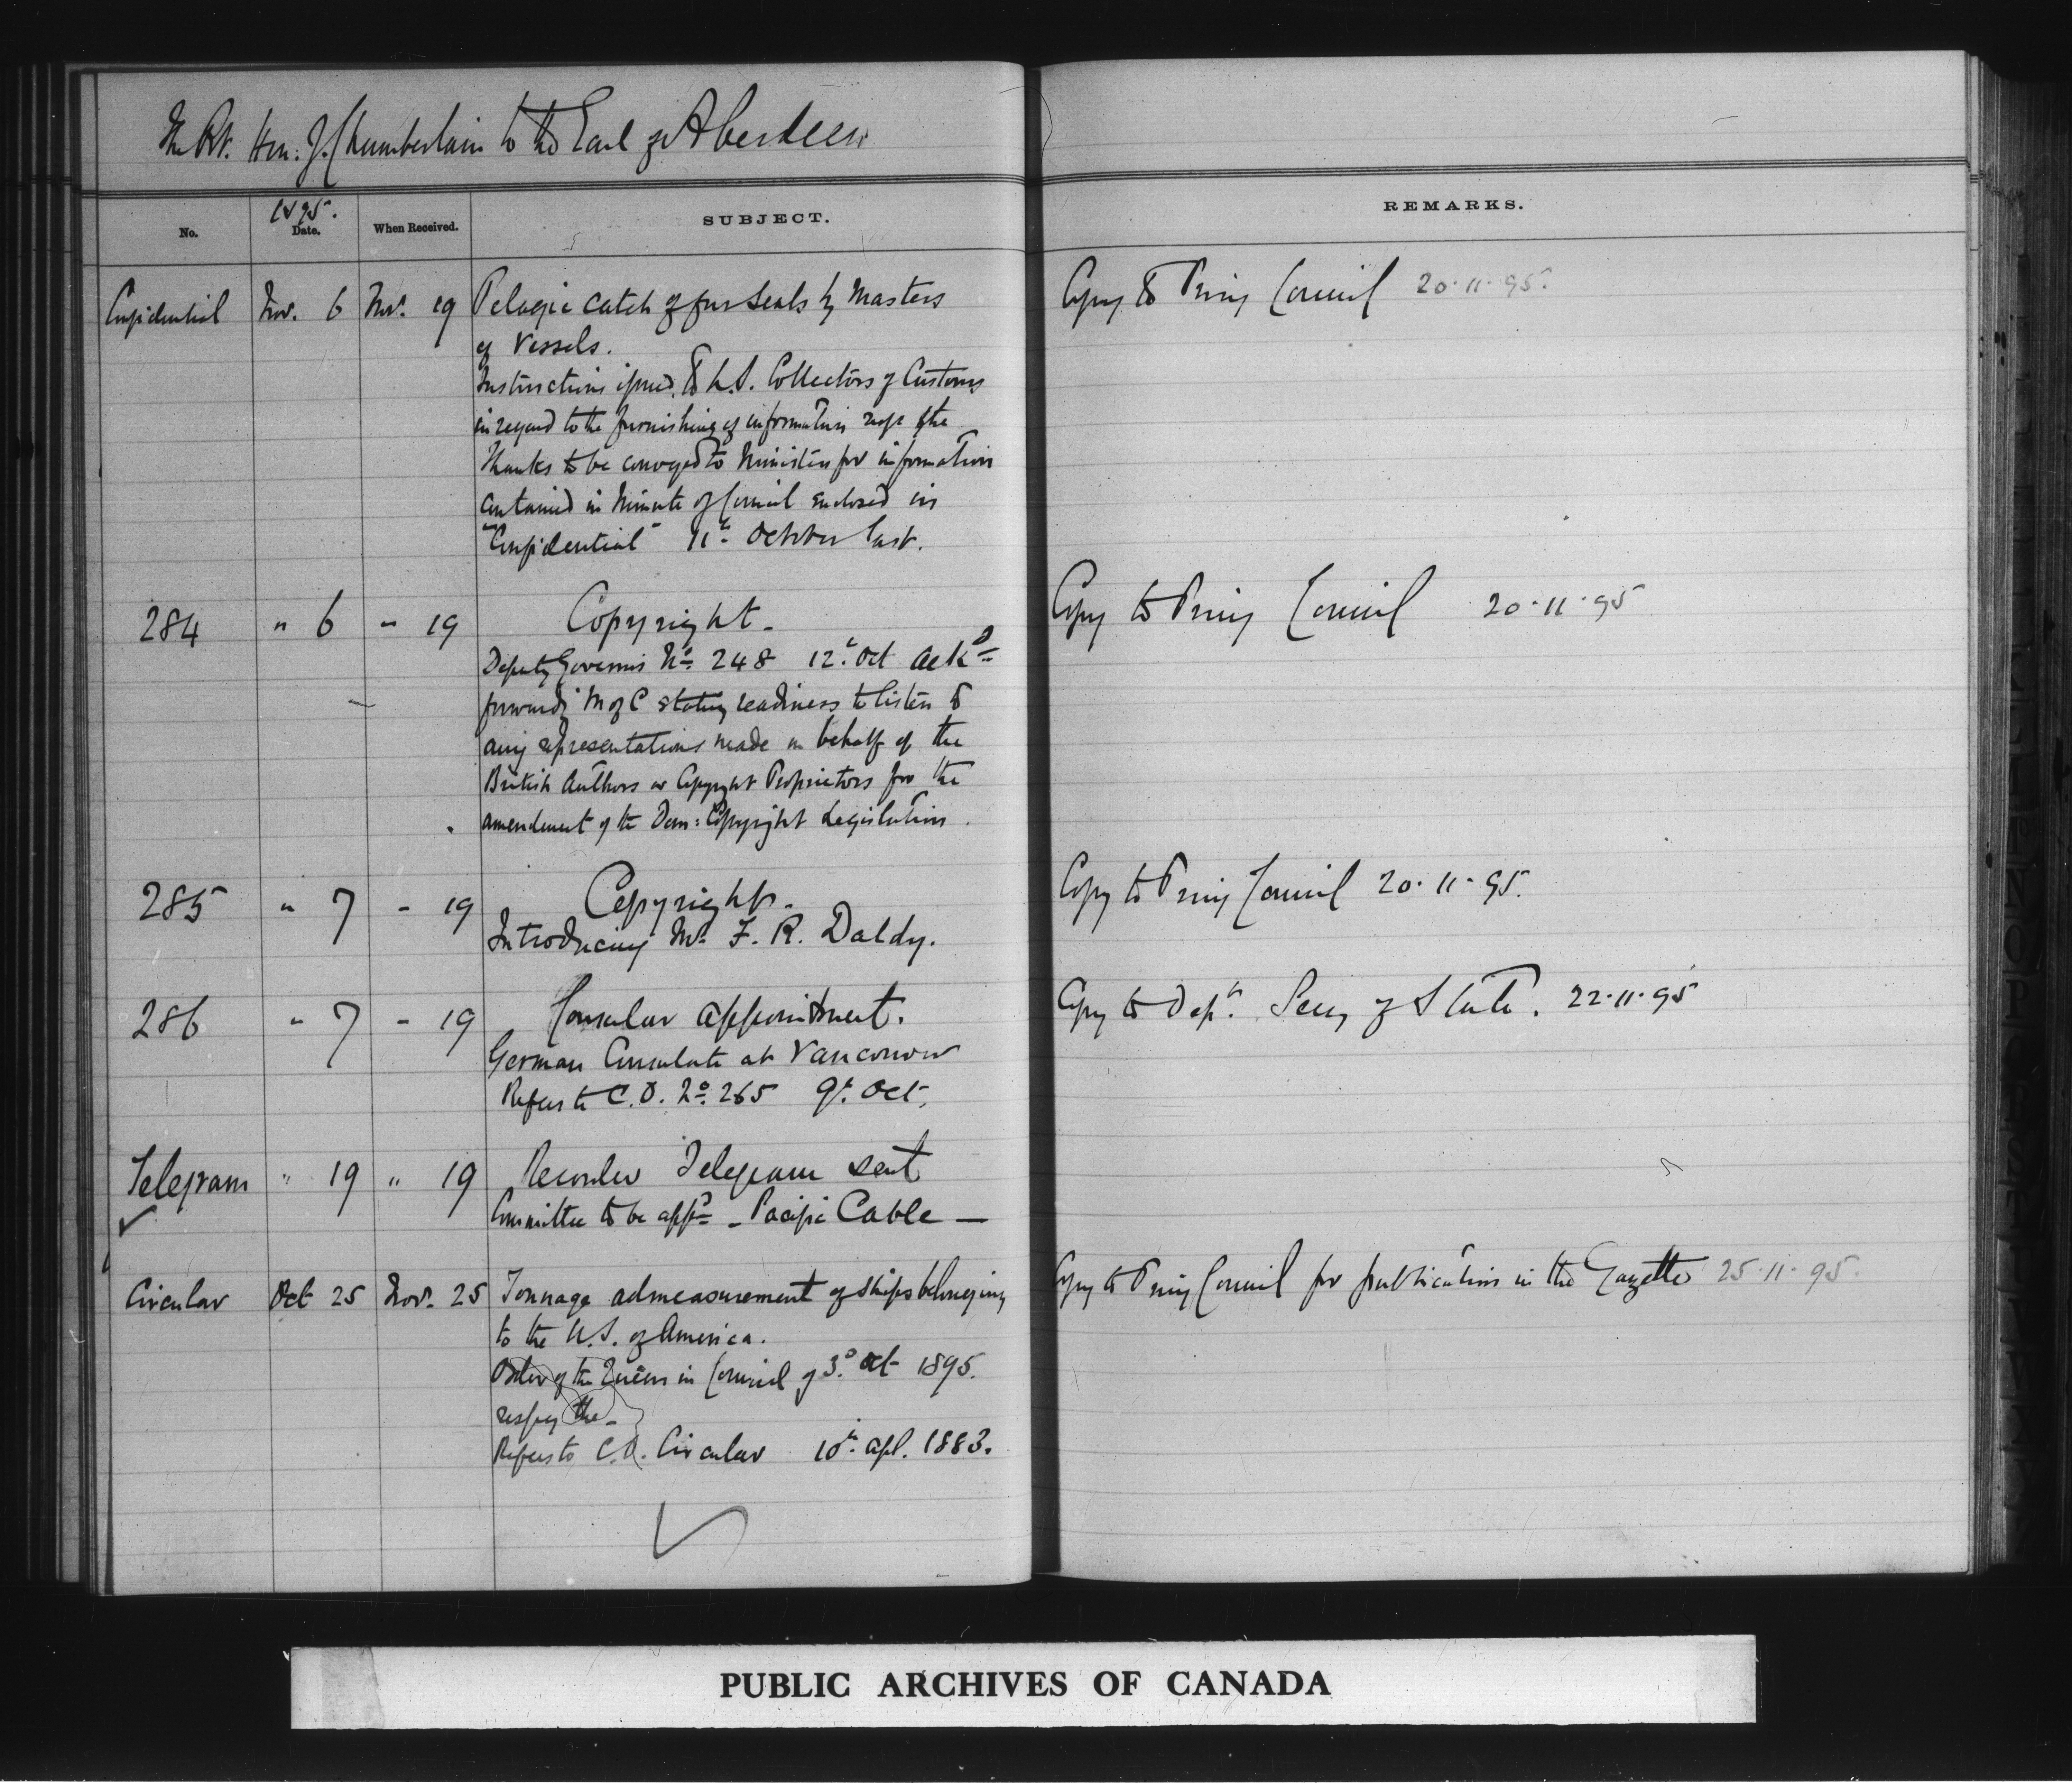 The Rt. Hon. J. Chamberlain to the Earl of Aberdeen
No.
1895.
Date.
When Received.
SUBJECT.
REMARKS.
Confidential Nov. 6 Nov. 19 Pelagic catch of fur seals by Masters
of Vessels.
Instructions issued to U.S. Collectors of Customs
in regard to the furnishing of information resp the
Thanks to be conveyed to Ministers for information
contained in Minute of Council enclosed in
"Confidential" 11th October last.
Copy to Privy Council 20.11.95.
284 " 6 " 19 Copyright.
Deputy Governor's No. 248 12th Oct ackd
forwardg M of C stating readiness to listen to
any representations made on behalf of the
British Authors or Copyright Proprietors for the
amendment of the Dom: Copyright Legislation.
Copy to Privy Council 20.11.95
285 " 7 - 19 Copyright.
Introducing Mr. F. R. Daldy.
Copy to Privy Council 20.11.95.
286 " 7 - 19 Consular appointment.
German Consulate at Vancouver
Refers to C.O. No. 265 9th Oct.
Copy to Dept. Secy of State. 22.11.95
Telegram " 19 " 19 Recorder Telegram sent
Committee to be appd - Pacific Cable —
Circular Oct 25 Nov. 25 Tonnage admeasurement of ships belonging
to the U.S. of America.
Order of the Queen in Council of 3d Oct 1895.
respg the -
Refers to C.O. Circular 10th Apl. 1883.
Copy to Privy Council for publication in the Gazette 25.11.95.
PUBLIC ARCHIVES OF CANADA